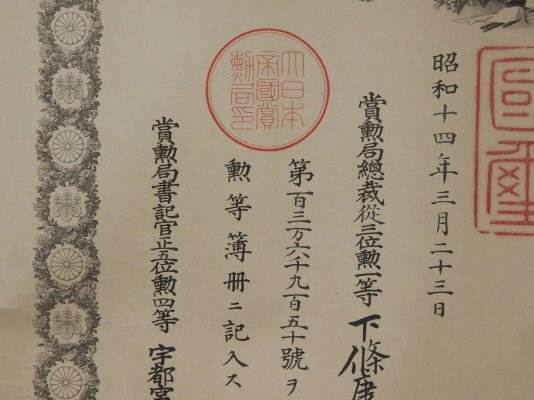 昭和十四年三月二十三日
賞勲局總裁從三位勲一等 下條康
第百三万六千九百五十號ヲ
勲等簿册ニ記入ス
賞勲局書記官正五位勲四等 宇都宮
大日本帝國賞勲局印